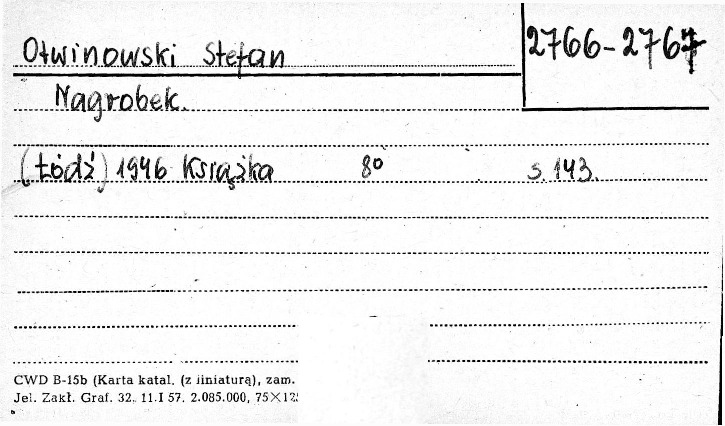 Otwinowski Stefan
2766-2767
Nagrobek.
(Łódź) 1946 Książka 8° s. 143.
CWD B-15b (Karta katal. (z liniaturą), zam.
Jel. Zakł. Graf. 32. 11.I 57. 2.085.000, 75×125